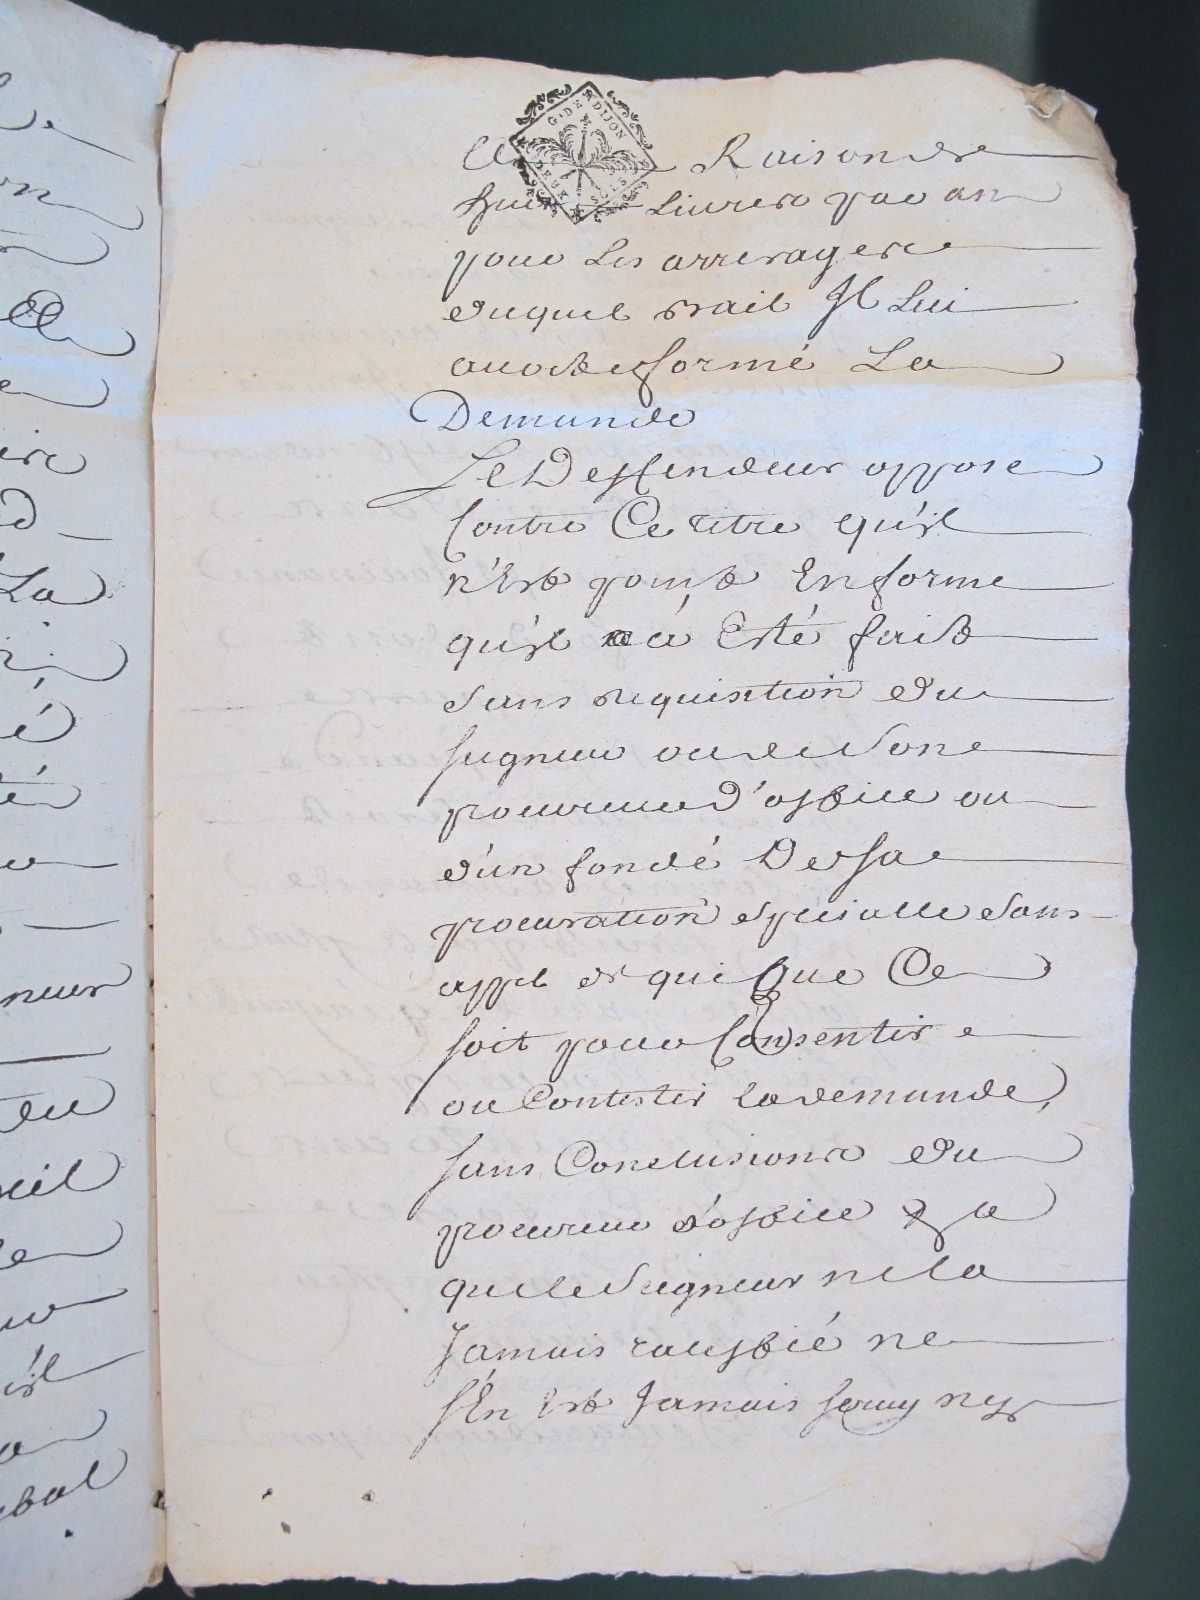 G. DE DIJON
DEUX SOLS
Raison de
Livres par an
pour Les arrerages
duquel bail Il Lui
avoit formé La
Demande
Le Deffendeur oppose
Contre Ce titre qu'il
n'Est point En forme
qu'il a Esté fait
sans requisition du
seigneur ou de Son
procureur d'office ou
d'un fondé De sa
procuration specialle sans
appel de qui que Ce
soit pour Consentir
ou Contester la demande,
sans Conclusions du
procureur d'office
que le Seigneur ne la
Jamais ratiffié ne
s'En Est Jamais servy ny